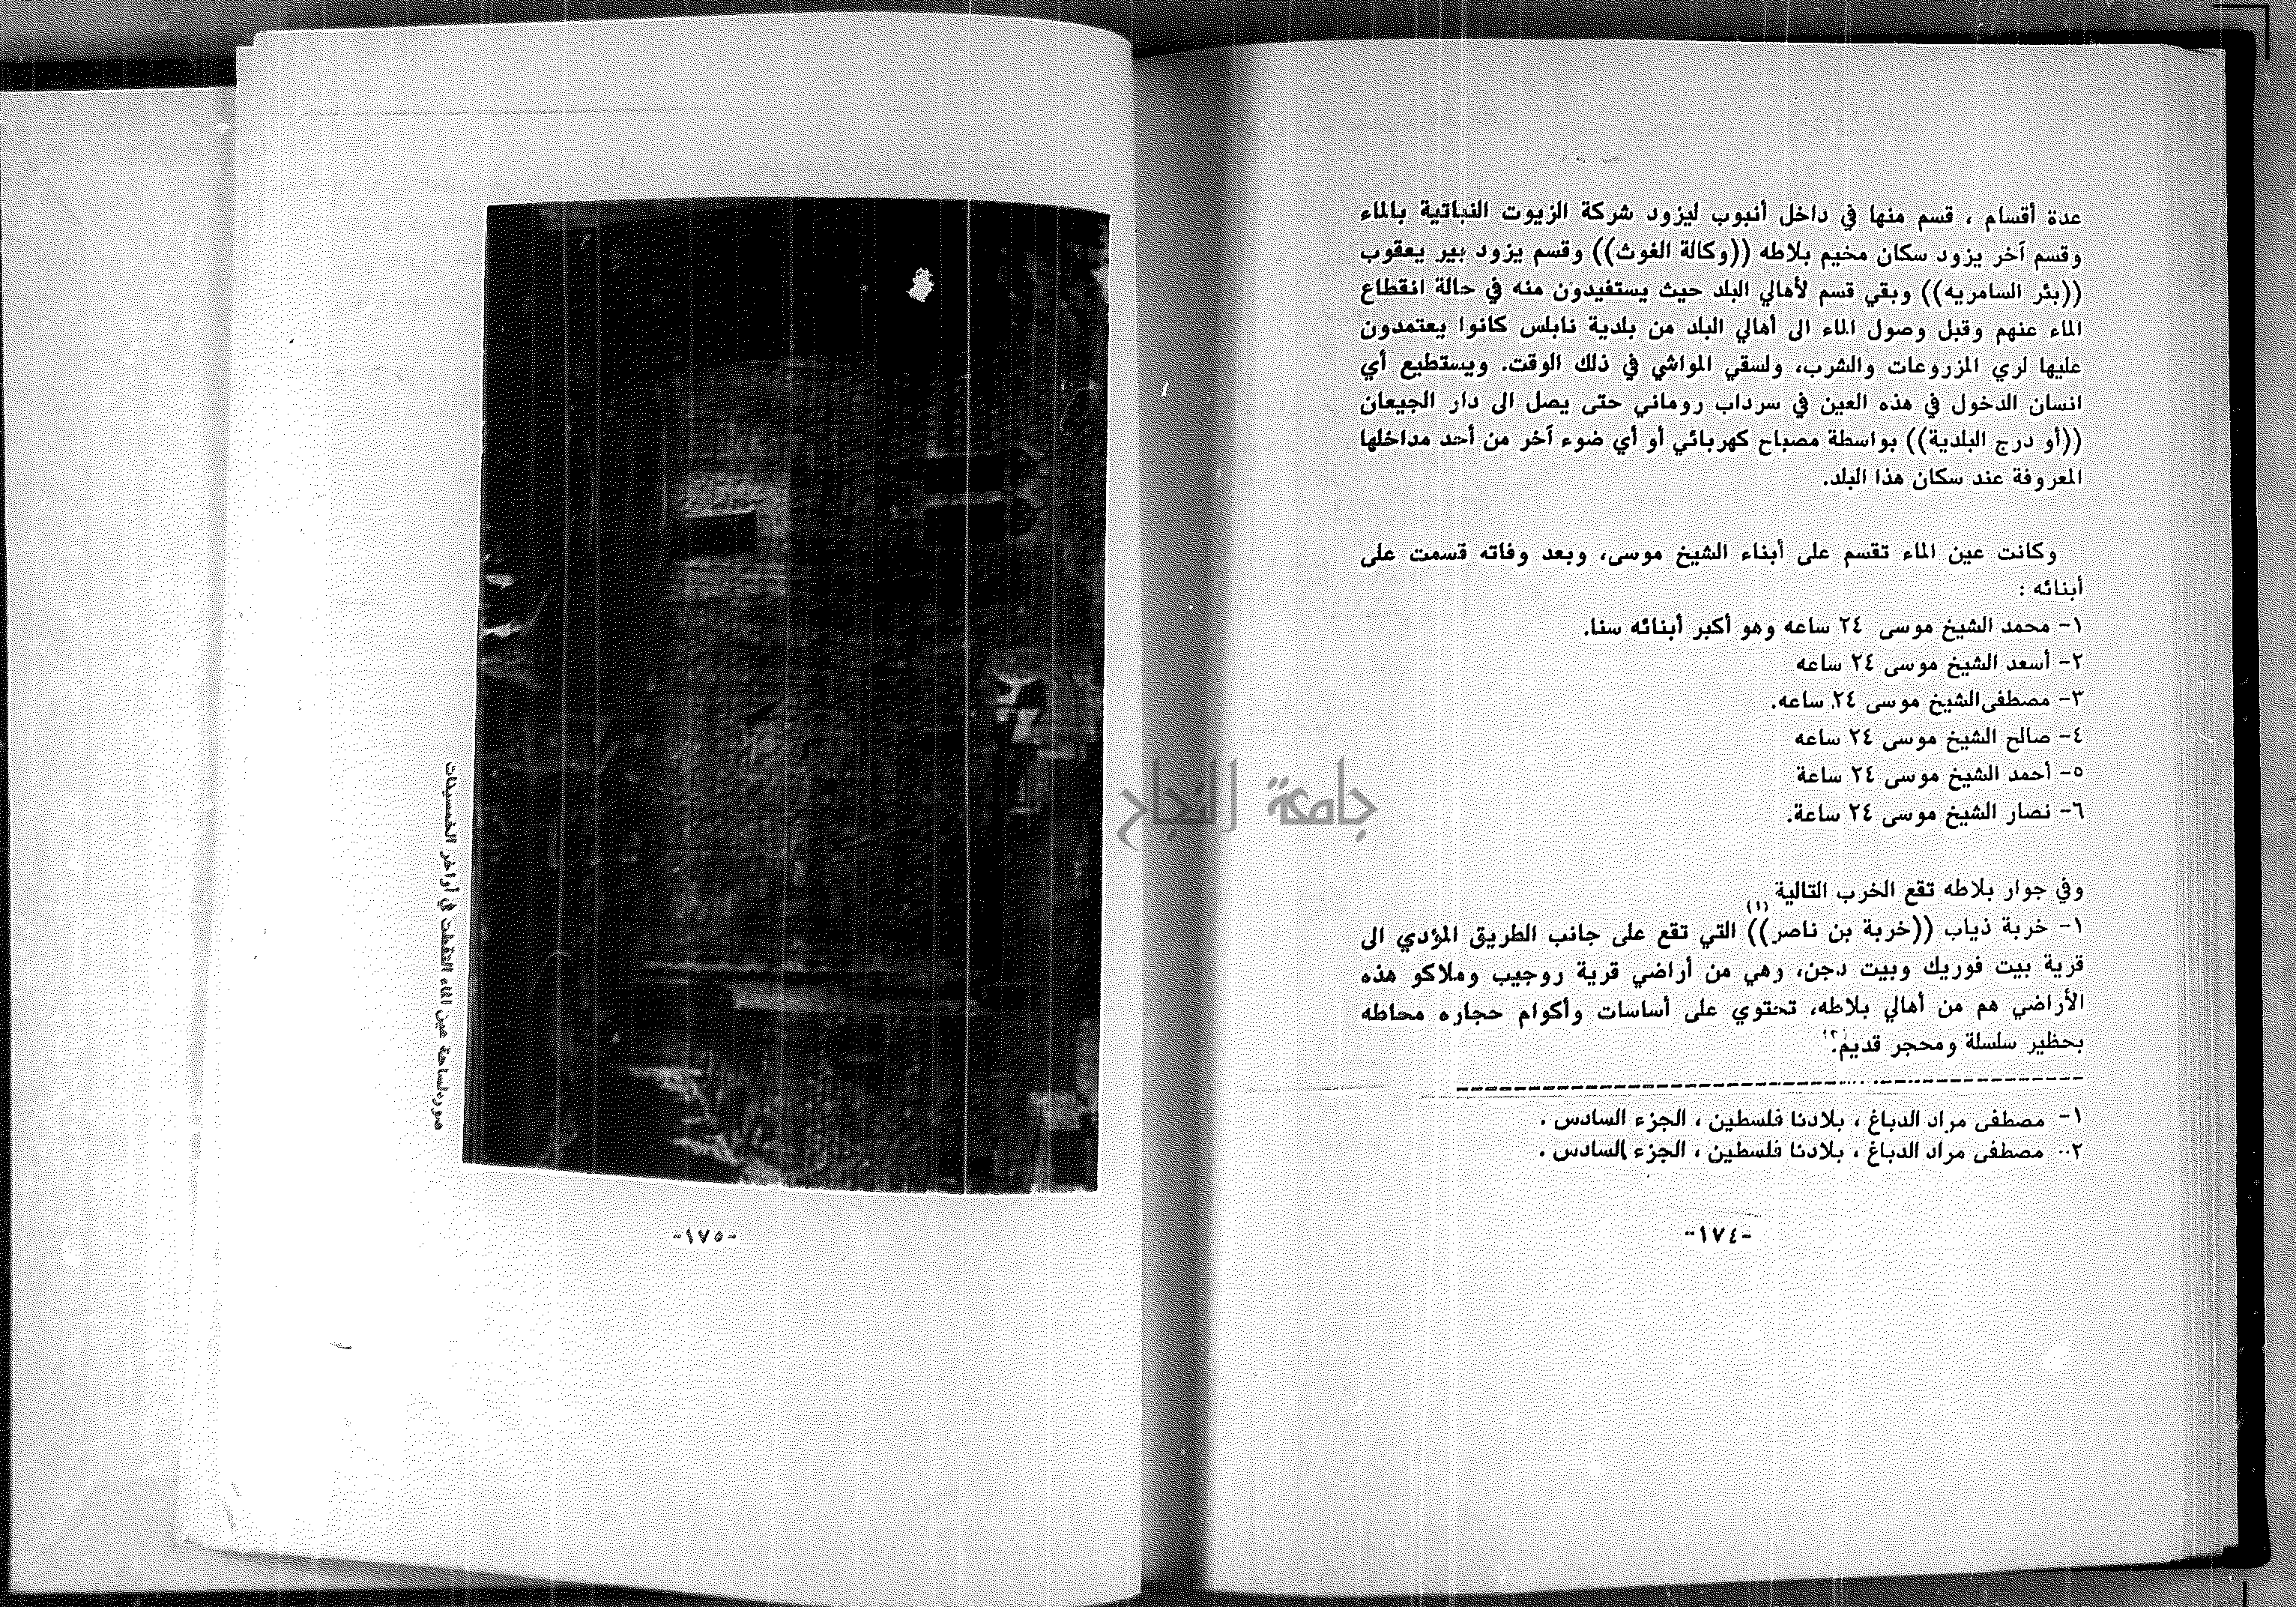 عدة أقسام ، قسم منها في داخل أنبوب ليزود شركة الزيوت النباتية بالماء
وقسم آخر يزود سكان مخيم بلاطه ((وكالة الغوث)) وقسم يزود بير يعقوب
((بئر السامريه)) وبقي قسم لأهالي البلد حيث يستفيدون منه في حالة انقطاع
الماء عنهم وقبل وصول الماء الى أهالي البلد من بلدية نابلس كانوا يعتمدون
عليها لري المزروعات والشرب، ولسقي المواشي في ذلك الوقت. ويستطيع أي
انسان الدخول في هذه العين في سرداب روماني حتى يصل الى دار الجيعان
((أو درج البلدية)) بواسطة مصباح كهربائي أو أي ضوء آخر من أحد مداخلها
المعروفة عند سكان هذا البلد.
وكانت عين الماء تقسم على أبناء الشيخ موسى، وبعد وفاته قسمت على
أبنائه :
١- محمد الشيخ موسى ٢٤ ساعه وهو أكبر أبنائه سنا.
٢- أسعد الشيخ موسى ٢٤ ساعه
٣- مصطفى الشيخ موسى ٢٤ ساعه.
٤- صالح الشيخ موسى ٢٤ ساعه
٥- أحمد الشيخ موسى ٢٤ ساعة
٦- نصار الشيخ موسى ٢٤ ساعة.
وفي جوار بلاطه تقع الخرب التالية
١- خربة ذياب ((خربة بن ناصر)) (١) التي تقع على جانب الطريق المؤدي الى
قرية بيت فوريك وبيت دجن، وهي من أراضي قرية روجيب وملاكو هذه
الأراضي هم من أهالي بلاطه، تحتوي على أساسات وأكوام حجاره محاطه
بحظير سلسلة ومحجر قديم.
١- مصطفى مراد الدباغ ، بلادنا فلسطين ، الجزء السادس .
٢- مصطفى مراد الدباغ ، بلادنا فلسطين ، الجزء السادس .
-١٧٤-
صوره لساحة عين الماء التقطت في أواخر الخمسينات
-١٧٥-
جامعة النجاح